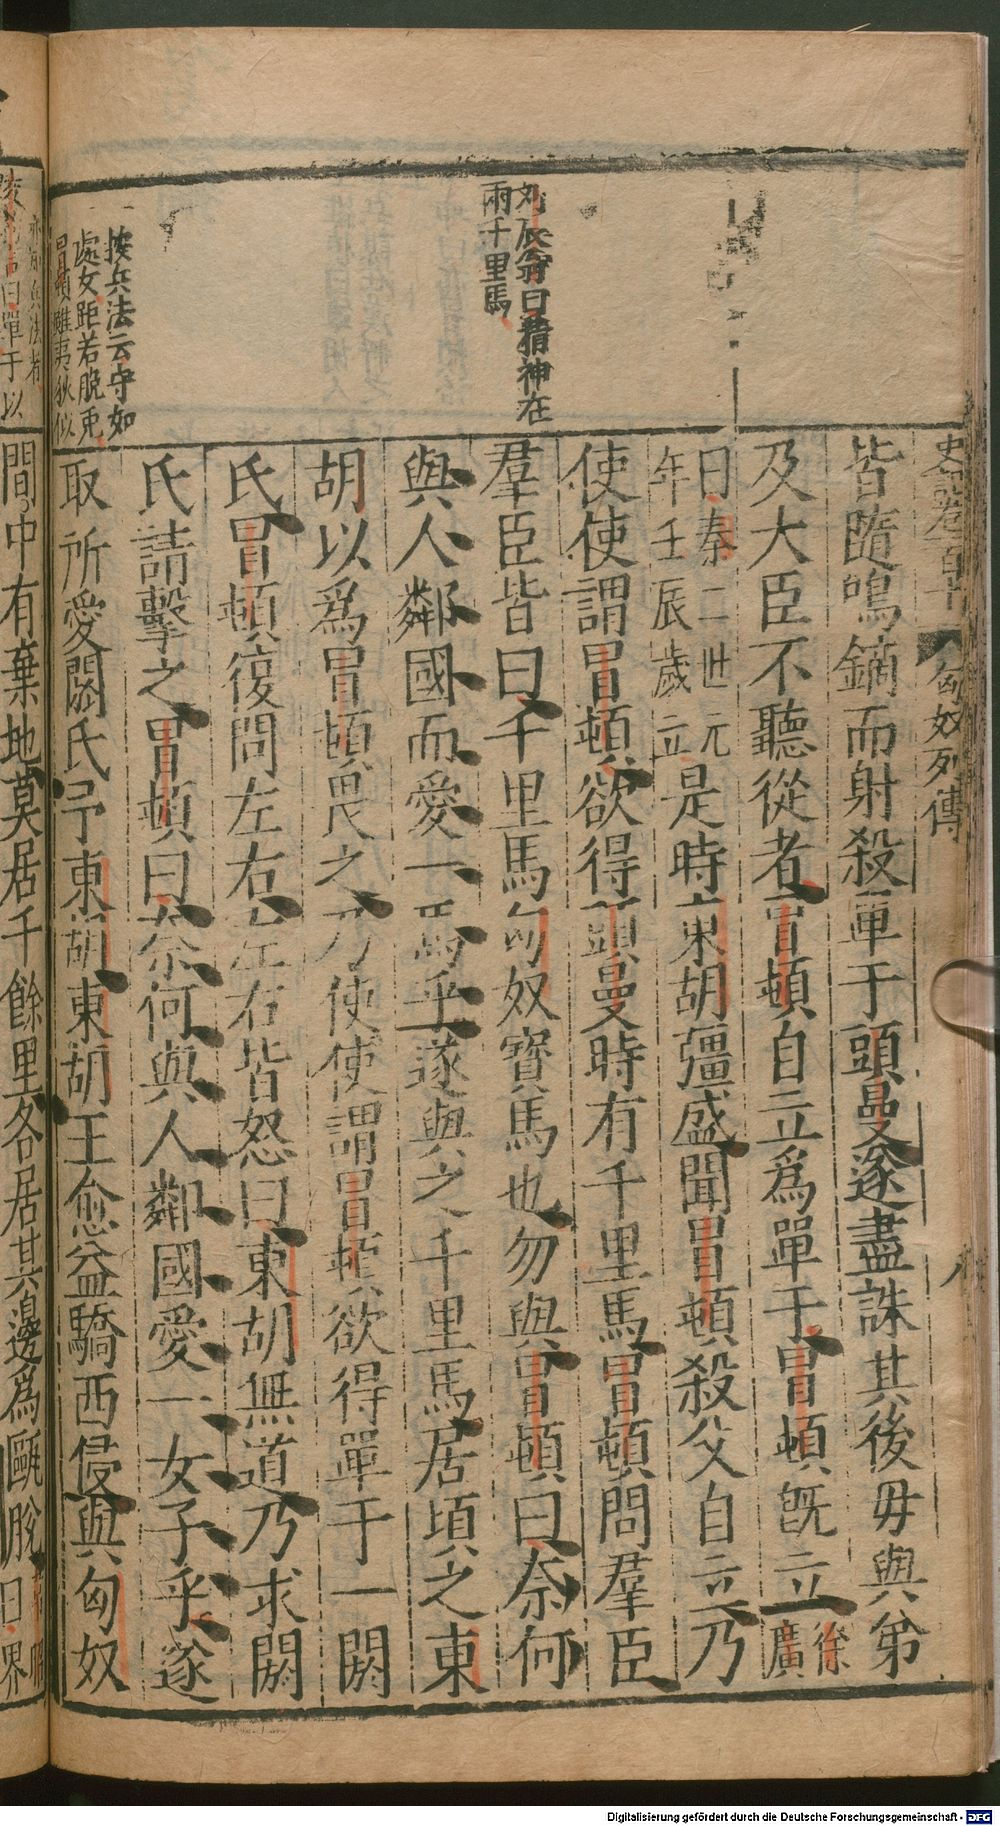 史記卷百十 匈奴列傳 八
皆隨鳴鏑而射殺單于頭曼遂盡誅其後母與弟
及大臣不聽從者冒頓自立爲單于冒頓既立徐廣
曰秦二世元年壬辰歲立是時東胡彊盛聞冒頓殺父自立乃
使使謂冒頓欲得頭曼時有千里馬冒頓問羣臣
羣臣皆曰千里馬匈奴寶馬也勿與冒頓曰柰何
與人鄰國而愛一馬乎遂與之千里馬居頃之東
胡以爲冒頓畏之乃使使謂冒頓欲得單于一閼
氏冒頓復問左右左右皆怒曰東胡無道乃求閼
氏請擊之冒頓曰柰何與人鄰國愛一女子乎遂
取所愛閼氏予東胡東胡王愈益驕西侵與匈奴
間中有棄地莫居千餘里各居其邊爲甌脫
曰界
劉辰翁曰精神在
兩千里馬
按兵法云守如
處女距若脫兔
冒頓雖夷狄似
亦能兵法者
曰單于以
Digitalisierung gefördert durch die Deutsche Forschungsgemeinschaft - DFG